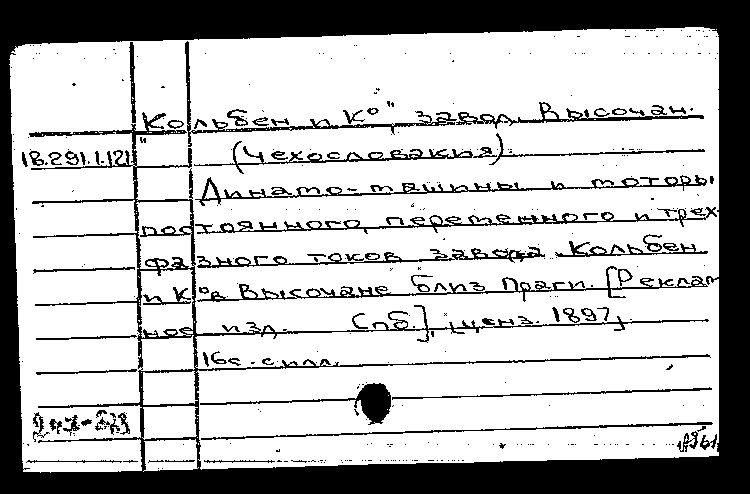 "Кольбен и К⁰", завод. Высочан.
18.291.1.121 (Чехословакия).
Динамо-машины и моторы
постоянного, переменного и трех-
фазного токов завода Кольбен
и К⁰ в Высочане близ Праги. [Реклам-
ное изд. Спб.], [ценз. 1897]
16с. с илл.